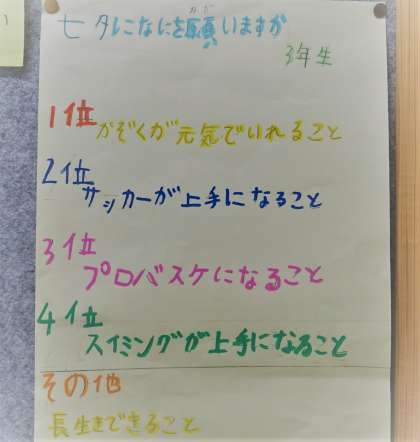 七夕になにを願いますか
3年生
1位
かぞくが元気でいれること
2位
サッカーが上手になること
3位
プロバスケになること
4位
スイミングが上手になること
その他
長生きできること